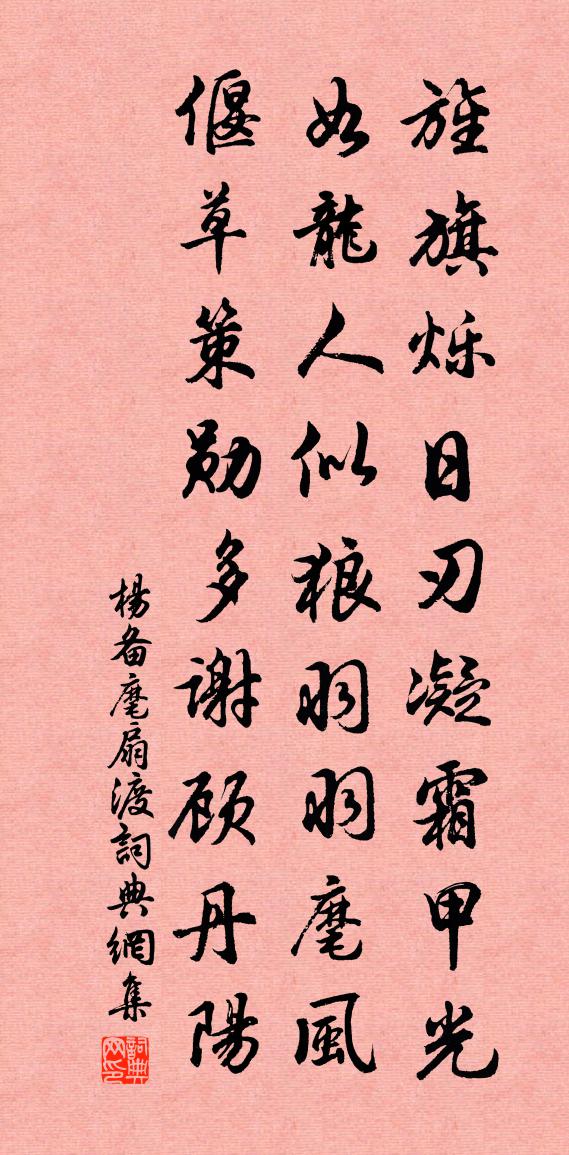 旌旗烁日刃凝霜甲光
如龍人似狼羽羽麾風
偃草策勋多谢顾丹陽
楊备麾扇渡詞典網集
詞典网印